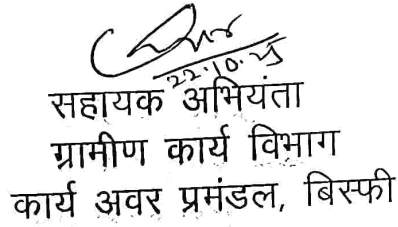 22.10.25
सहायक अभियंता
ग्रामीण कार्य विभाग
कार्य अवर प्रमंडल, बिस्फी